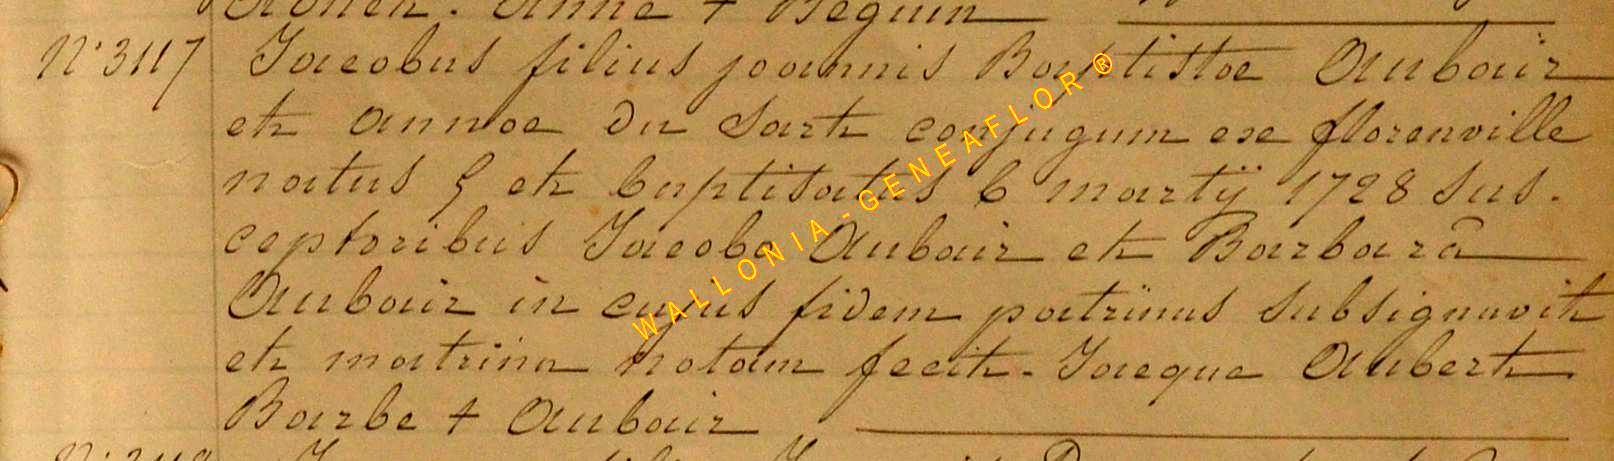 Anne + Beguin
N° 3117 Jacobus filius joannis Baptistae Aubair
et annae du Sart conjugum ex florenville
natus 5 et baptisatus 6 martij 1728 sus-
ceptoribus Jacobo Aubair et Barbarâ
Aubair in cujus fidem patrinus subsignavit
et matrina notam fecit. Jacque Aubert
Barbe + Aubair
WALLONIA-GENEAFLOR ®